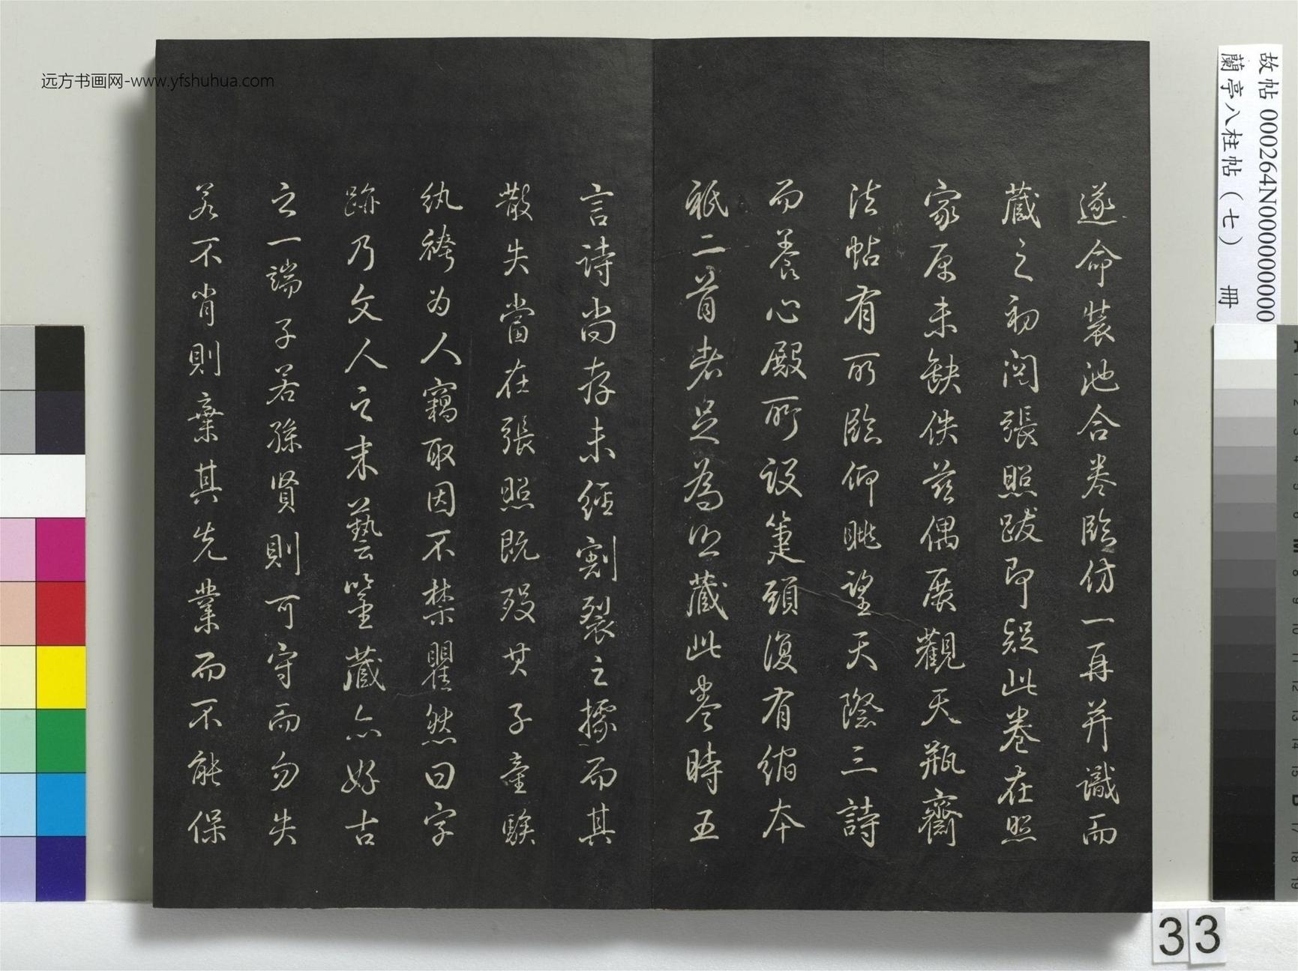 遂命裝池合卷臨仿一再并識而
藏之初閱張照跋即疑此卷在照
家原未缺佚茲偶展觀天瓶齋
法帖有所臨仰眺望天際三詩
而養心殿所設箑頭復有縮本
祇二首者足為收藏此卷時五
言詩尚存未經割裂之據而其
散失當在張照既歿其子童騃
紈袴為人竊取因不禁瞿然曰字
跡乃文人之末藝鑒藏亦好古
之一端子若孫賢則可守而勿失
若不肖則棄其先業而不能保
故帖 000264N000000000
蘭亭八柱帖（七） 冊
远方书画网-www.yfshuhua.com
33